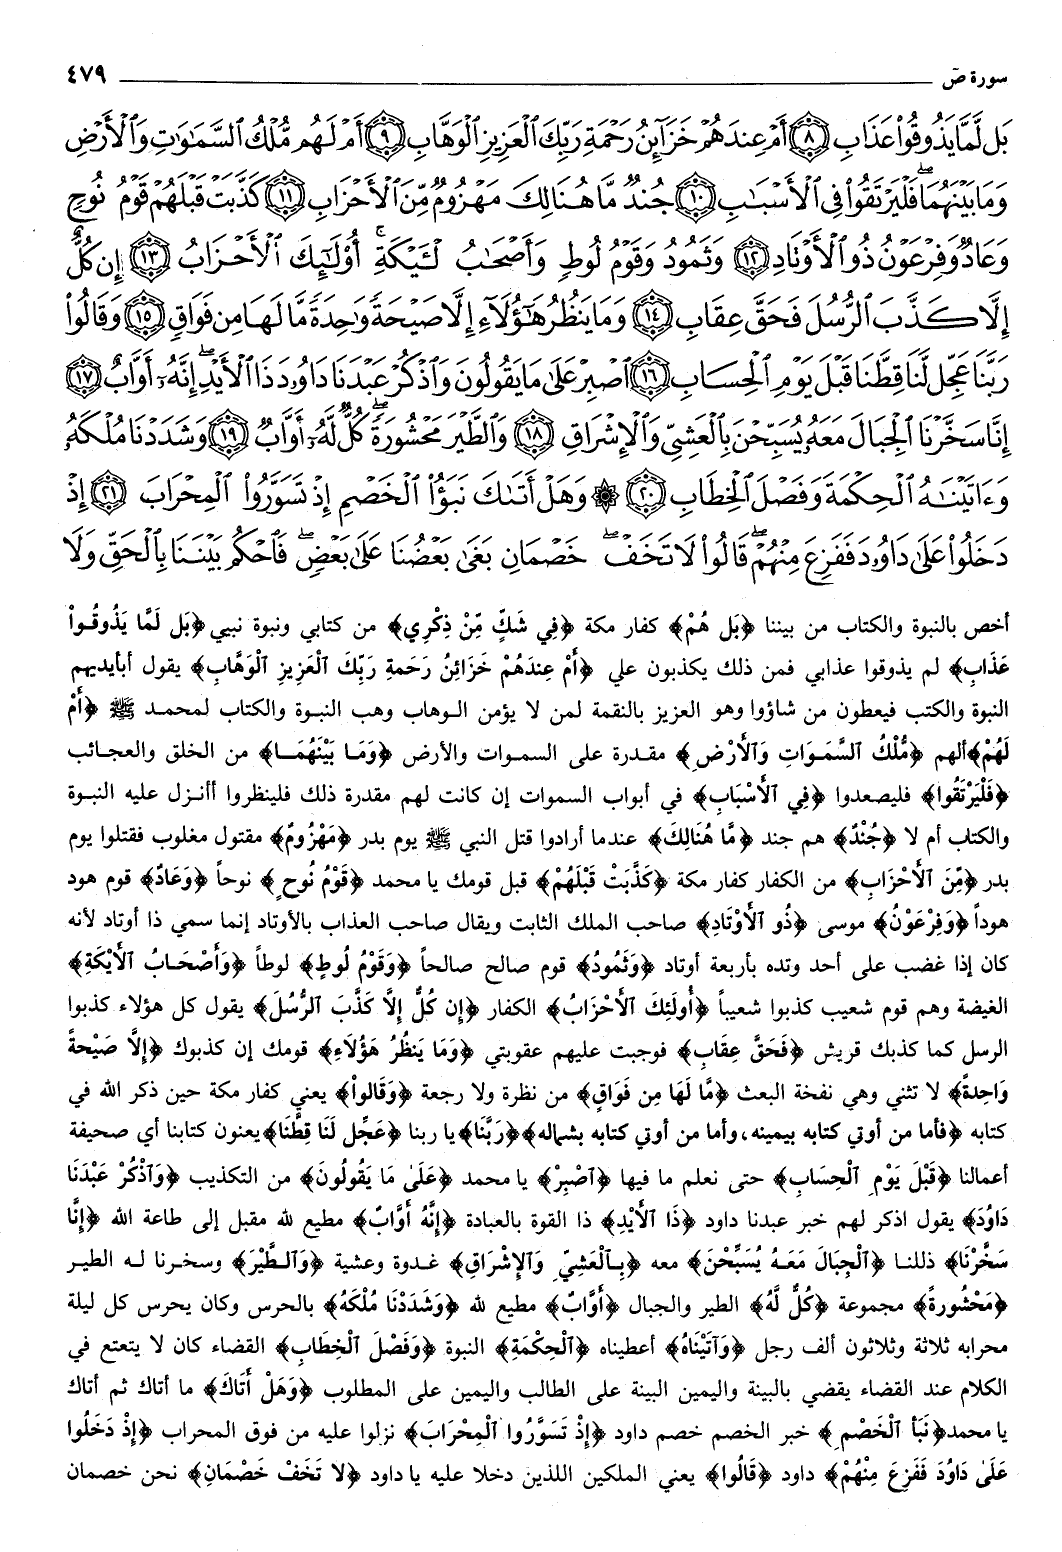 سورة صٓ ٤٧٩
بَل لَّمَّا يَذُوقُوا۟ عَذَابِ ﴿٨﴾ أَمْ عِندَهُمْ خَزَآئِنُ رَحْمَةِ رَبِّكَ ٱلْعَزِيزِ ٱلْوَهَّابِ ﴿٩﴾ أَمْ لَهُم مُّلْكُ ٱلسَّمَٰوَٰتِ وَٱلْأَرْضِ
وَمَا بَيْنَهُمَا ۖ فَلْيَرْتَقُوا۟ فِى ٱلْأَسْبَٰبِ ﴿١٠﴾ جُندٌ مَّا هُنَالِكَ مَهْزُومٌ مِّنَ ٱلْأَحْزَابِ ﴿١١﴾ كَذَّبَتْ قَبْلَهُمْ قَوْمُ نُوحٍ
وَعَادٌ وَفِرْعَوْنُ ذُو ٱلْأَوْتَادِ ﴿١٢﴾ وَثَمُودُ وَقَوْمُ لُوطٍ وَأَصْحَٰبُ لْـَٔيْكَةِ ۚ أُو۟لَٰٓئِكَ ٱلْأَحْزَابُ ﴿١٣﴾ إِن كُلٌّ
إِلَّا كَذَّبَ ٱلرُّسُلَ فَحَقَّ عِقَابِ ﴿١٤﴾ وَمَا يَنظُرُ هَٰٓؤُلَآءِ إِلَّا صَيْحَةً وَٰحِدَةً مَّا لَهَا مِن فَوَاقٍ ﴿١٥﴾ وَقَالُوا۟
رَبَّنَا عَجِّل لَّنَا قِطَّنَا قَبْلَ يَوْمِ ٱلْحِسَابِ ﴿١٦﴾ ٱصْبِرْ عَلَىٰ مَا يَقُولُونَ وَٱذْكُرْ عَبْدَنَا دَاوُۥدَ ذَا ٱلْأَيْدِ ۖ إِنَّهُۥٓ أَوَّابٌ ﴿١٧﴾
إِنَّا سَخَّرْنَا ٱلْجِبَالَ مَعَهُۥ يُسَبِّحْنَ بِٱلْعَشِىِّ وَٱلْإِشْرَاقِ ﴿١٨﴾ وَٱلطَّيْرَ مَحْشُورَةً ۖ كُلٌّ لَّهُۥٓ أَوَّابٌ ﴿١٩﴾ وَشَدَدْنَا مُلْكَهُۥ
وَءَاتَيْنَٰهُ ٱلْحِكْمَةَ وَفَصْلَ ٱلْخِطَابِ ﴿٢٠﴾ ۞ وَهَلْ أَتَىٰكَ نَبَؤُا۟ ٱلْخَصْمِ إِذْ تَسَوَّرُوا۟ ٱلْمِحْرَابَ ﴿٢١﴾ إِذْ
دَخَلُوا۟ عَلَىٰ دَاوُۥدَ فَفَزِعَ مِنْهُمْ ۖ قَالُوا۟ لَا تَخَفْ ۖ خَصْمَانِ بَغَىٰ بَعْضُنَا عَلَىٰ بَعْضٍ ۖ فَٱحْكُم بَيْنَنَا بِٱلْحَقِّ وَلَا
أخص بالنبوة والكتاب من بيننا ﴿بَل هُمْ﴾ كفار مكة ﴿فِي شَكٍّ مِّنْ ذِكْرِي﴾ من كتابي ونبوة نبيي ﴿بَل لَمَّا يَذُوقُـواْ
عَذَابِ﴾ لم يذوقوا عذابي فمن ذلك يكذبون علي ﴿أَمْ عِندَهُمْ خَزَائِنُ رَحْمَةِ رَبِّكَ ٱلْعَزِيزِ ٱلْوَهَّابِ﴾ يقول أبأيديهم
النبوة والكتب فيعطون من شاؤوا وهو العزيز بالنقمة لمن لا يؤمن الـوهاب وهب النبـوة والكتاب لمحمـد ﷺ ﴿أَمْ
لَهُمْ﴾ ألهم ﴿مُّلْكُ ٱلسَّمَوَاتِ وَٱلأَرْضِ﴾ مقـدرة على السمـوات والأرض ﴿وَمَا بَيْنَهُمَـا﴾ من الخلق والعجـائب
﴿فَلْيَرْتَقُوا﴾ فليصعدوا ﴿فِي ٱلأَسْبَابِ﴾ في أبواب السموات إن كانت لهم مقدرة ذلك فلينظروا أأنـزل عليه النبـوة
والكتاب أم لا ﴿جُنْدٌ﴾ هم جند ﴿مَّا هُنَالِكَ﴾ عندما أرادوا قتل النبي ﷺ يوم بدر ﴿مَهْزُومٌ﴾ مقتول مغلوب فقتلوا يوم
بدر ﴿مِّنَ ٱلأَحْزَابِ﴾ من الكفار كفار مكة ﴿كَذَّبَتْ قَبْلَهُمْ﴾ قبل قومك يا محمد ﴿قَوْمُ نُوحٍ﴾ نوحاً ﴿وَعَادٌ﴾ قوم هود
هوداً ﴿وَفِرْعَوْنُ﴾ موسى ﴿ذُو ٱلأَوْتَادِ﴾ صاحب الملك الثابت ويقال صاحب العذاب بالأوتاد إنما سمي ذا أوتاد لأنه
كان إذا غضب على أحد وتده بأربعة أوتاد ﴿وَثَمُودُ﴾ قوم صالح صالحاً ﴿وَقَوْمُ لُوطٍ﴾ لوطاً ﴿وَأَصْحَابُ ٱلأَيْكَةِ﴾
الغيضة وهم قوم شعيب كذبوا شعيباً ﴿أُولَئِكَ ٱلأَحْزَابُ﴾ الكفار ﴿إِن كُلٌّ إِلَّا كَذَّبَ ٱلرُّسُلَ﴾ يقول كل هؤلاء كذبوا
الرسل كما كذبك قريش ﴿فَحَقَّ عِقَابِ﴾ فوجبت عليهم عقوبتي ﴿وَمَا يَنظُرُ هَؤُلَاءِ﴾ قومك إن كذبوك ﴿إِلَّا صَيْحةً
وَاحِدةً﴾ لا تثني وهي نفخة البعث ﴿مَّا لَهَا مِن فَوَاقٍ﴾ من نظرة ولا رجعة ﴿وَقَالواْ﴾ يعني كفار مكة حين ذكر الله في
كتابه ﴿فأما من أوتي كتابه بيمينه، وأما من أوتي كتابه بشماله﴾ ﴿رَبَّنَا﴾ يا ربنا ﴿عَجِّل لَنَا قِطَّنَا﴾ يعنون كتابنا أي صحيفة
أعمالنا ﴿قَبْلَ يَوْمِ ٱلْحِسَابِ﴾ حتى نعلم ما فيها ﴿ٱصْبِرْ﴾ يا محمد ﴿عَلَىٰ مَا يَقُولُونَ﴾ من التكذيب ﴿وَٱذْكُرْ عَبْدَنَا
دَاوُدَ﴾ يقول اذكر لهم خبر عبدنا داود ﴿ذَا ٱلأَيْدِ﴾ ذا القوة بالعبادة ﴿إِنَّهُ أَوَّابٌ﴾ مطيع لله مقبل إلى طاعة الله ﴿إِنَّا
سَخَّرْنَا﴾ ذللنـا ﴿ٱلْجِبَالَ مَعَـهُ يُسَبِّحْنَ﴾ معه ﴿بِـٱلْعَشِيِّ وَٱلإِشْرَاقِ﴾ غـدوة وعشية ﴿وَٱلـطَّيْرَ﴾ وسخـرنا لـه الطيـر
﴿مَحْشُورةً﴾ مجموعة ﴿كُلٌّ لَّهُ﴾ الطير والجبال ﴿أَوَّابٌ﴾ مطيع لله ﴿وَشَدَدْنَا مُلْكَهُ﴾ بالحرس وكان يحرس كل ليلة
محرابه ثلاثة وثلاثون ألف رجل ﴿وَآتَيْنَاهُ﴾ أعطيناه ﴿ٱلْحِكْمَةِ﴾ النبوة ﴿وَفَصْلَ ٱلْخِطَابِ﴾ القضاء كان لا يتعتع في
الكلام عند القضاء يقضي بالبينة واليمين البينة على الطالب واليمين على المطلوب ﴿وَهَلْ أَتَاكَ﴾ ما أتاك ثم أتاك
يا محمد ﴿نَبَأ ٱلْخَصْمِ﴾ خبر الخصم خصم داود ﴿إِذْ تَسَوَّرُوا ٱلْمِحْرَابَ﴾ نزلوا عليه من فوق المحراب ﴿إِذْ دَخَلُوا
عَلَىٰ دَاوُدَ فَفَزِعَ مِنْهُمْ﴾ داود ﴿قَالُوا﴾ يعني الملكين اللذين دخلا عليه يا داود ﴿لَا تَخَفْ خَصْمَانِ﴾ نحن خصمان